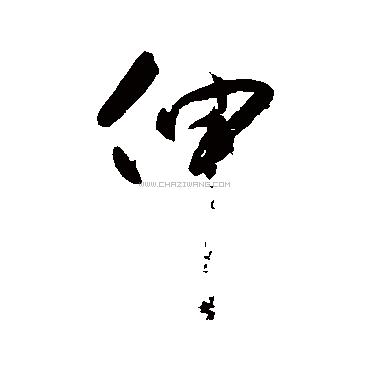 伸
WWW.CHAZIWANG.COM